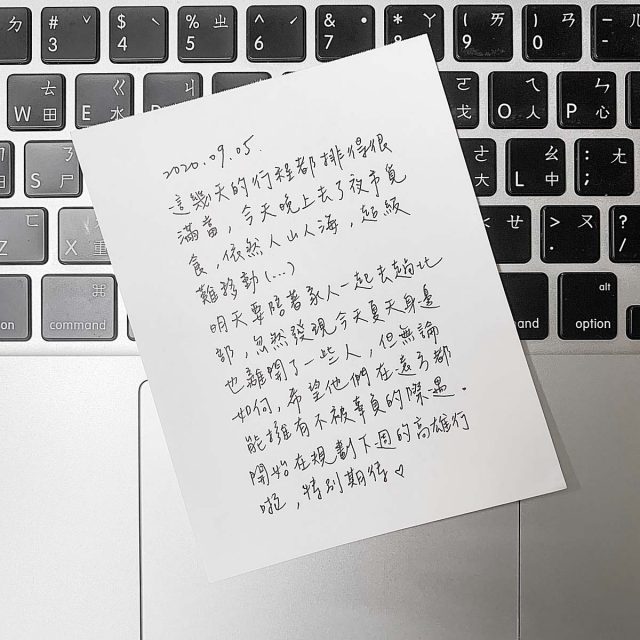 # 3 $ 4 % 5 ㄓ ^ 6 ˊ & 7 ˙ * 8 ㄚ ( 9 ㄞ ) 0 ㄢ
W 田 E ㄍ 水 O ㄟ 人 P ㄣ 心
S ㄋ 尸 L ㄠ 中 : ; ㄤ
Z 重 X 難 < , ㄝ > . ㄡ ? / ㄥ
option ⌘ command command alt option
2020.09.05.
這幾天的行程都排得很
滿當，今天晚上去了夜市覓
食，依然人山人海，超級
難移動(...)
明天要陪著家人一起去趟北
部，忽然發現今天夏天身邊
也離開了一些人，但無論
如何，希望他們在遠方都
能擁有不被辜負的際遇.
開始在規劃下週的高雄行
啦，特別期待♡